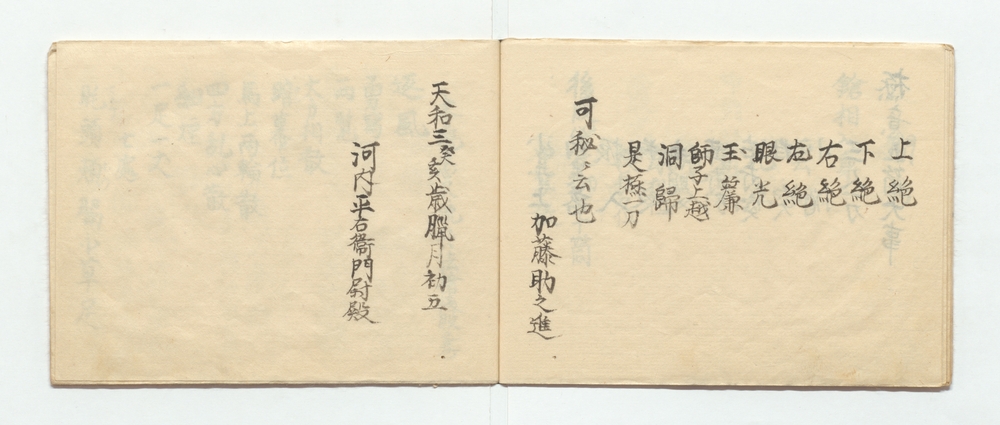 上絶
下絶
右絶
左絶
眼光
玉簾
師子之越
洞歸
是極一刀
可秘〻云也
加藤助之進
天和三癸亥歳臘月初五
河内平右衛門尉殿